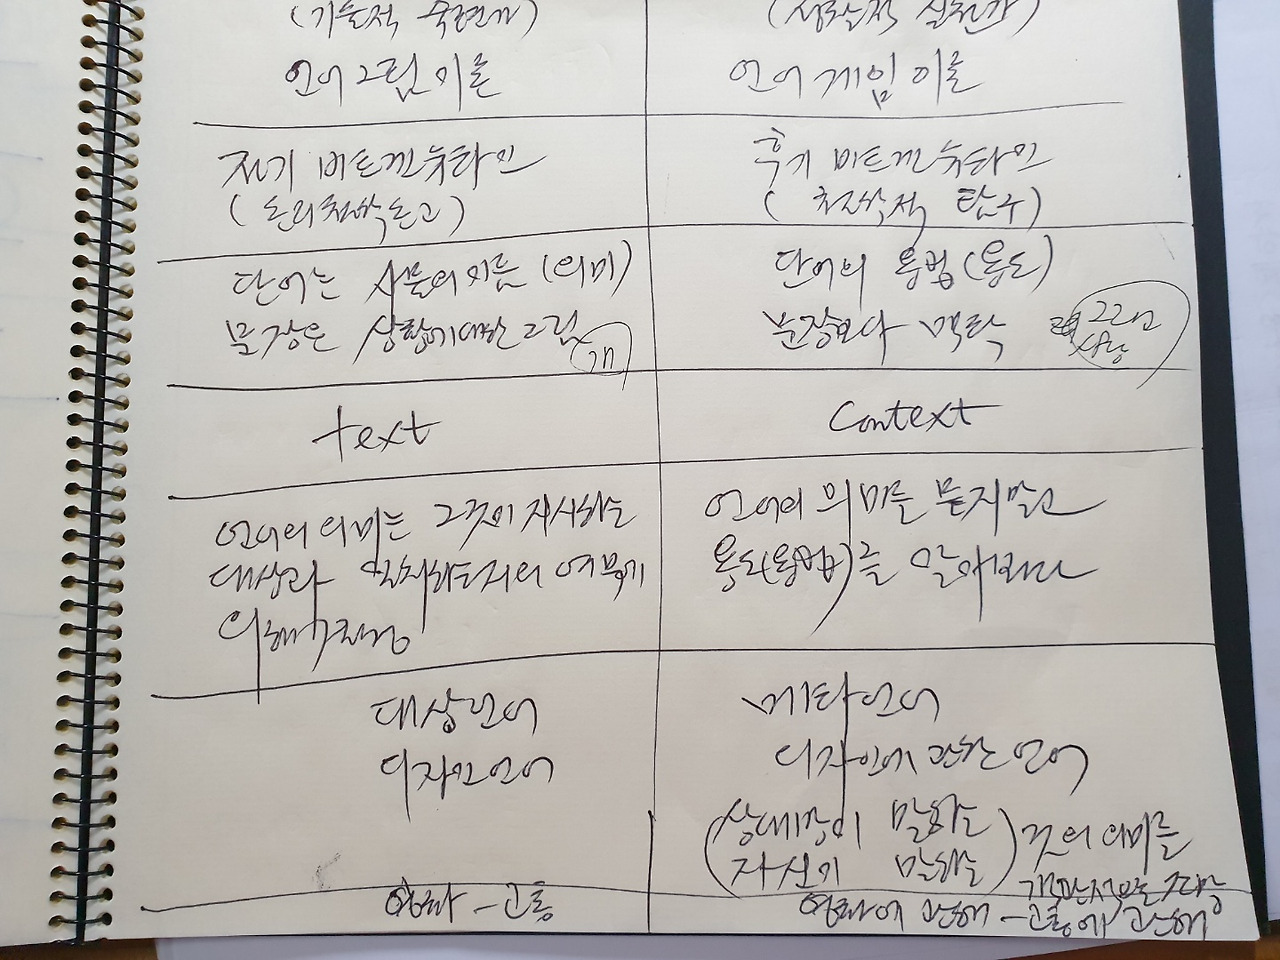 (기술적 숙련가)
(성찰적 실천가)
언어그림이론
언어게임이론
전기 비트겐슈타인
(논리철학논고)
후기 비트겐슈타인
(철학적 탐구)
단어는 사물의 이름 (의미)
문장은 상황에 대한 그림
개
단어의 용법(용도)
문장보다 맥락
그 남
사람
text
Context
언어의 의미는 그것이 지시하는
대상과 일치하는지의 여부에
언어의 의미를 묻지말고
용도(용법)를 알아봐라
대상언어
디자인언어
메타언어
디자인에 관한 언어
(상대방이 말하는
자신이 말하는) 것의 의미를
영화 - 고통
영화에 관해 - 고통에 관해